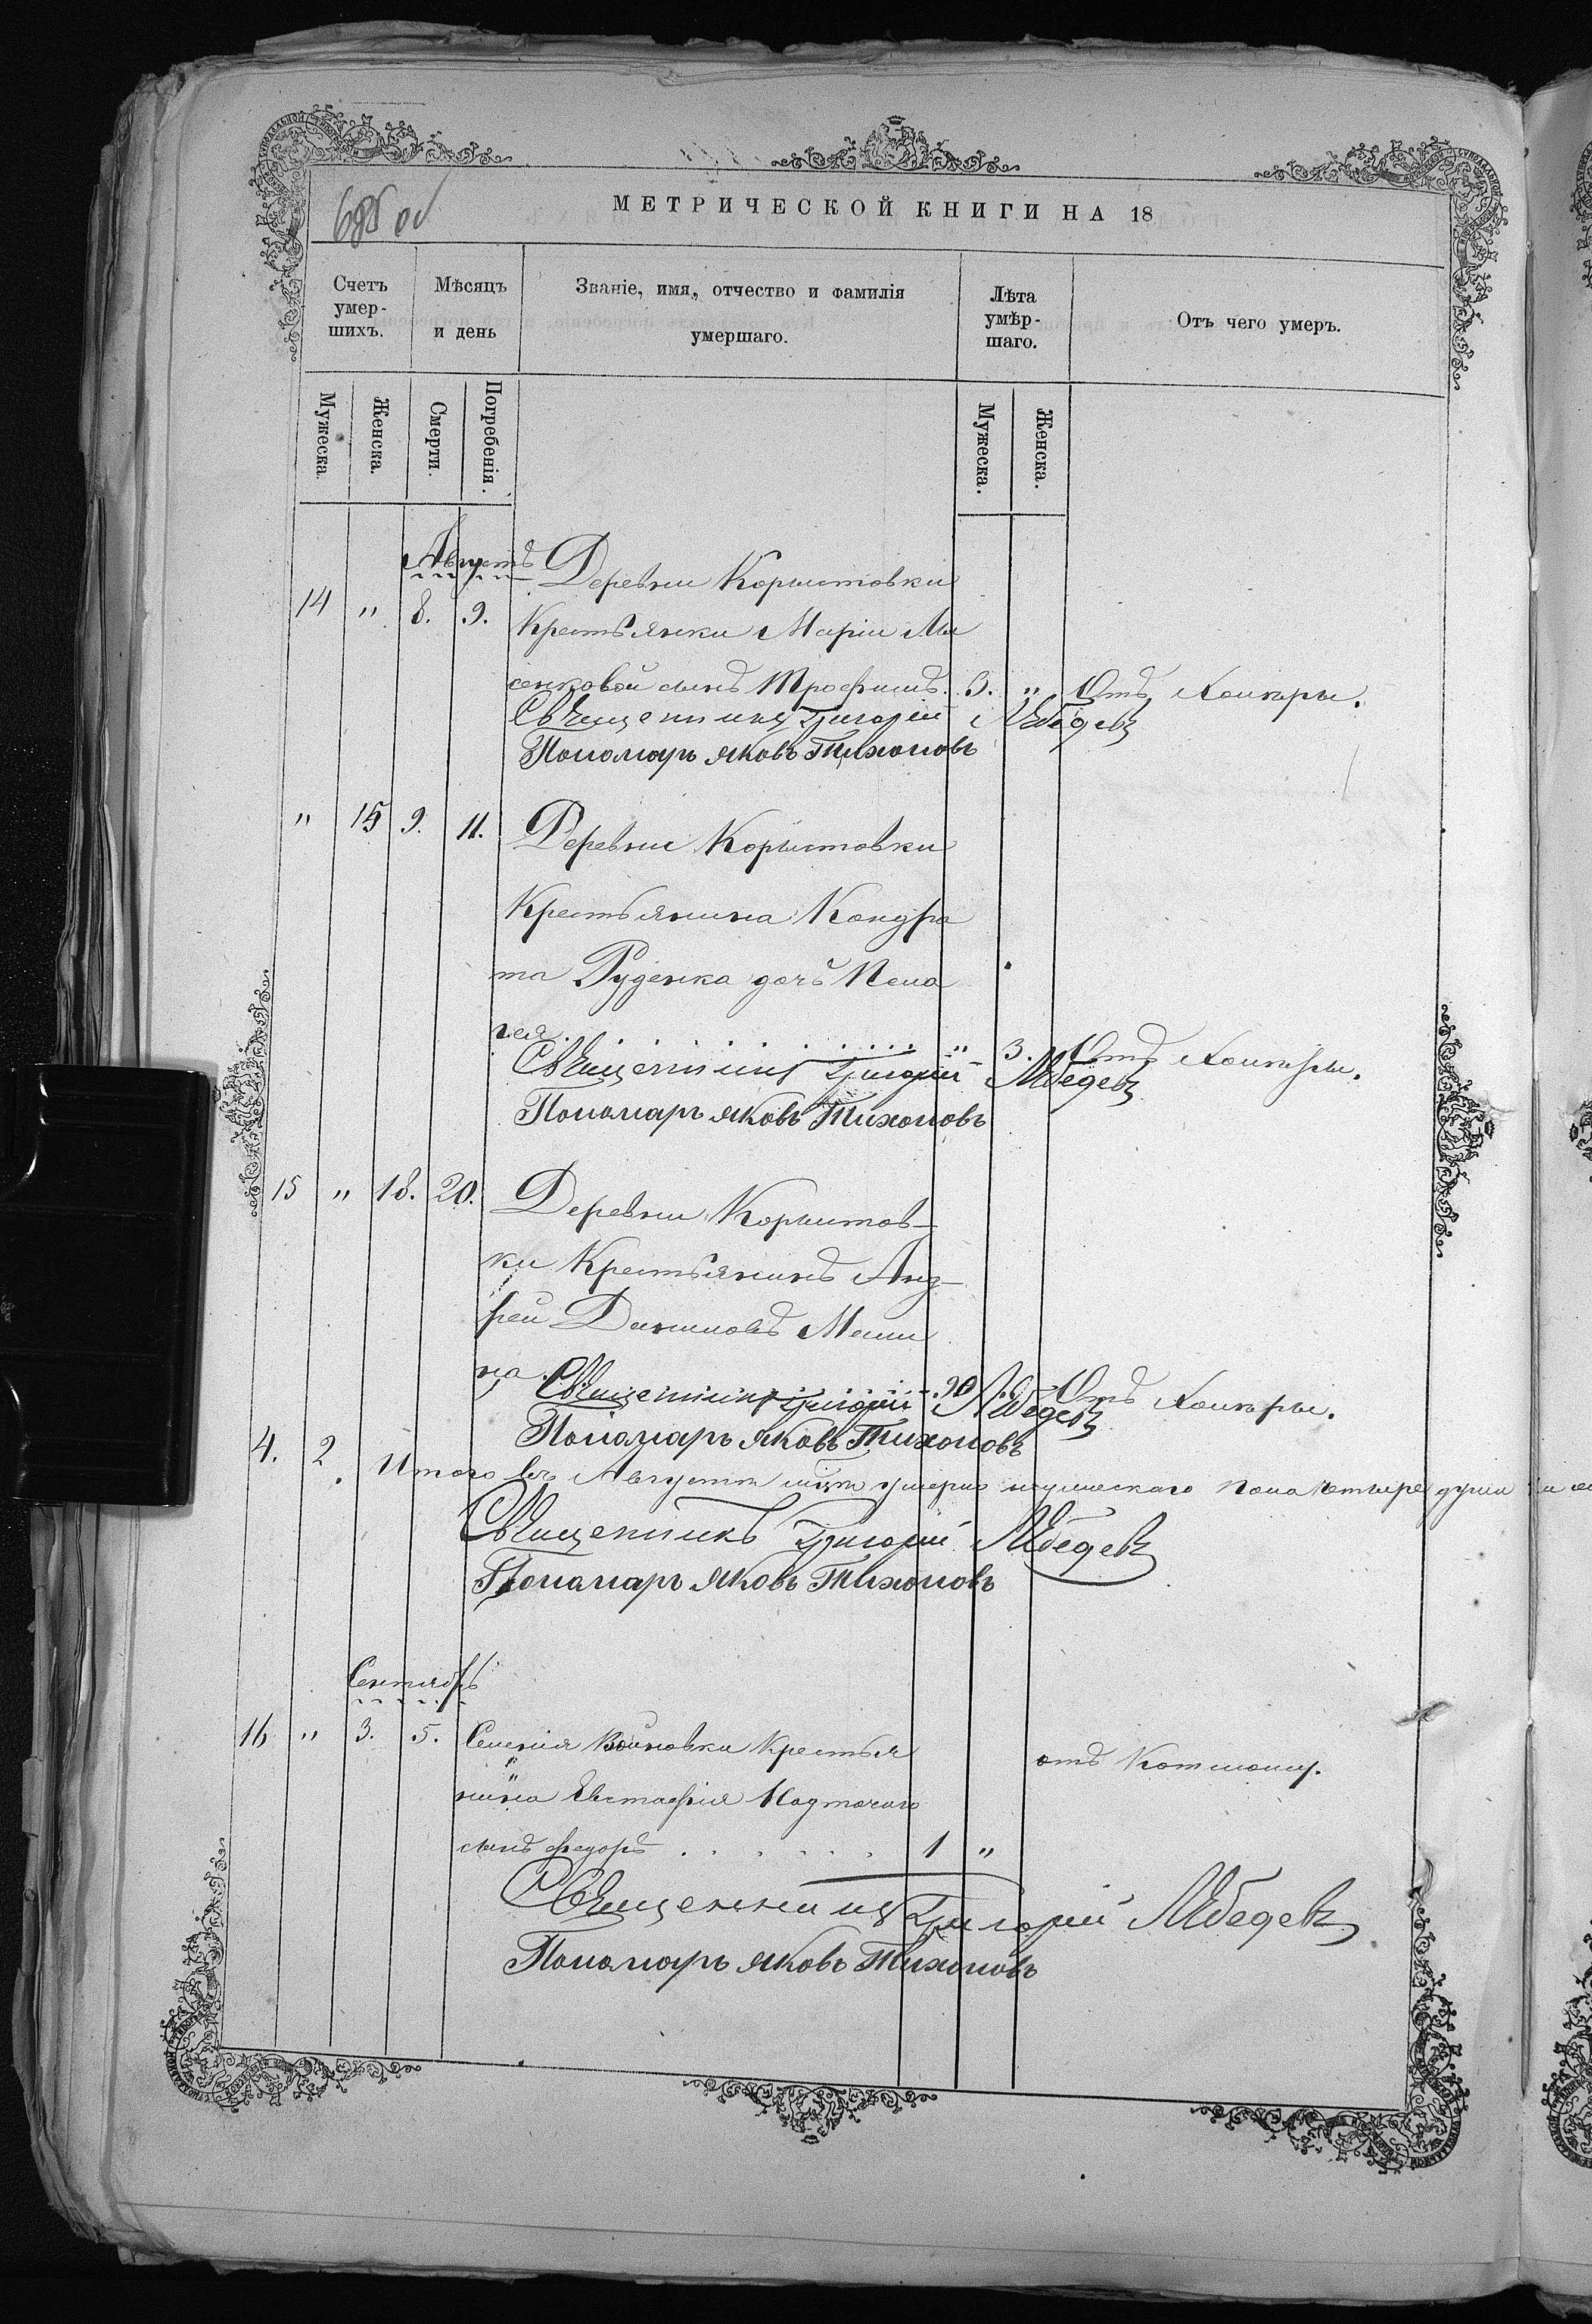 685 об
МЕТРИЧЕСКОЙ КНИГИ НА 18
Счетъ умер-шихъ. Мѣсяцъ и день Званіе, имя, отчество и фамилія умершаго. Лѣта умѣр-шаго. Отъ чего умеръ.
Мужеска. Женска. Смерти. Погребенія. Мужеска. Женска.
Августъ Деревни Корыстовки
14 " 8. 9. Крестьянки Маріи Лы
сенковой сынъ Трофимъ. 3. " Отъ Холеры.
Священникъ Григорій Лебедевъ
Пономарь Яковъ Тихоновъ
" 15 9. 11. Деревни Корыстовки
Крестьянина Кондра
та Руденка дочь Пела
гея. " 3. Отъ Холеры.
Священникъ Григорій Лебедевъ
Пономарь Яковъ Тихоновъ
15 " 18. 20. Деревни Корыстов-
ки Крестьянинъ Анд-
рей Даниловъ
Отъ Холеры.
Священникъ Григорій Лебедевъ
Пономарь Яковъ Тихоновъ
4. 2. Итого въ Августѣ умерло мужескаго пола четыре души и
Священникъ Григорій Лебедевъ
Пономарь Яковъ Тихоновъ
Сентябрь
16 " 3. 5. Селенія Войновки Крестья
отъ
нина Евстафія
сынъ Федоръ . . . . . . 1 "
Священникъ Григорій Лебедевъ
Пономарь Яковъ Тихоновъ